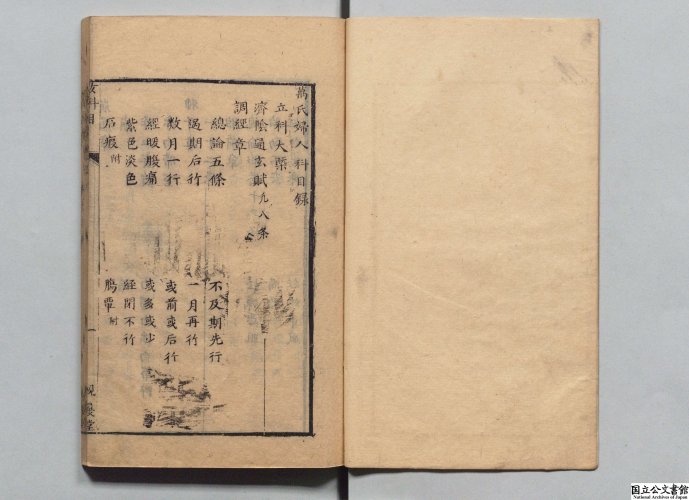 萬氏婦人科目錄
立科大槩
濟陰通玄賦 凡八条
調經章
總論五條
不及期先行
過期后行
一月再行
數月一行
或前或后行
經暖腹痛
或多或少
紫色淡色
經閉不行
石瘕 附
腸覃 附
女科目
一
堂
国立公文書館
National Archives of Japan